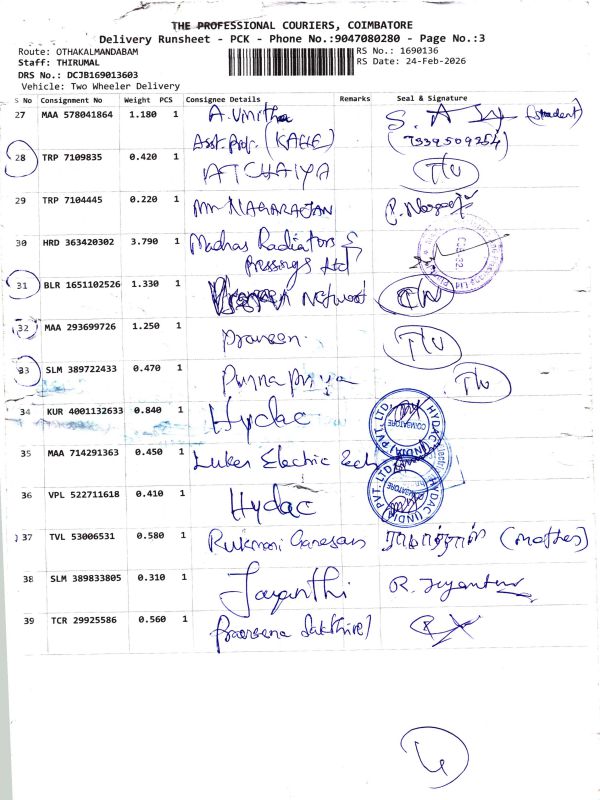 THE PROFESSIONAL COURIERS, COIMBATORE
Delivery Runsheet - PCK - Phone No.:9047080280 - Page No.:3
Route: OTHAKALMANDABAM RS No.: 1690136
Staff: THIRUMAL RS Date: 24-Feb-2026
DRS No.: DCJB169013603
Vehicle: Two Wheeler Delivery
S No Consignment No Weight PCS Consignee Details Remarks Seal & Signature
27 MAA 578041864 1.180 1 A. Vnitha (student)
Asst. Prof. (KAHE) (7339509254)
28 TRP 7109835 0.420 1 ATCHAIYA T/U
29 TRP 7104445 0.220 1 Mr NAGARAJAN
30 HRD 363420302 3.790 1 Madras Radiators &
Pressings Ltd
31 BLR 1651102526 1.330 1 Network
32 MAA 293699726 1.250 1 Praveen. T/U
33 SLM 389722433 0.470 1 Punnapriya T/U
34 KUR 4001132633 0.840 1 Hydac HYDAC (INDIA) PVT. LTD. COIMBATORE
35 MAA 714291363 0.450 1 Lukes Electric
36 VPL 522711618 0.410 1 Hydac HYDAC (INDIA) PVT. LTD. COIMBATORE
37 TVL 53006531 0.580 1 Rukmani Ganesan (mother)
38 SLM 389833805 0.310 1 Jayanthi R. Jayanthi
39 TCR 29925586 0.560 1 Sakthivel